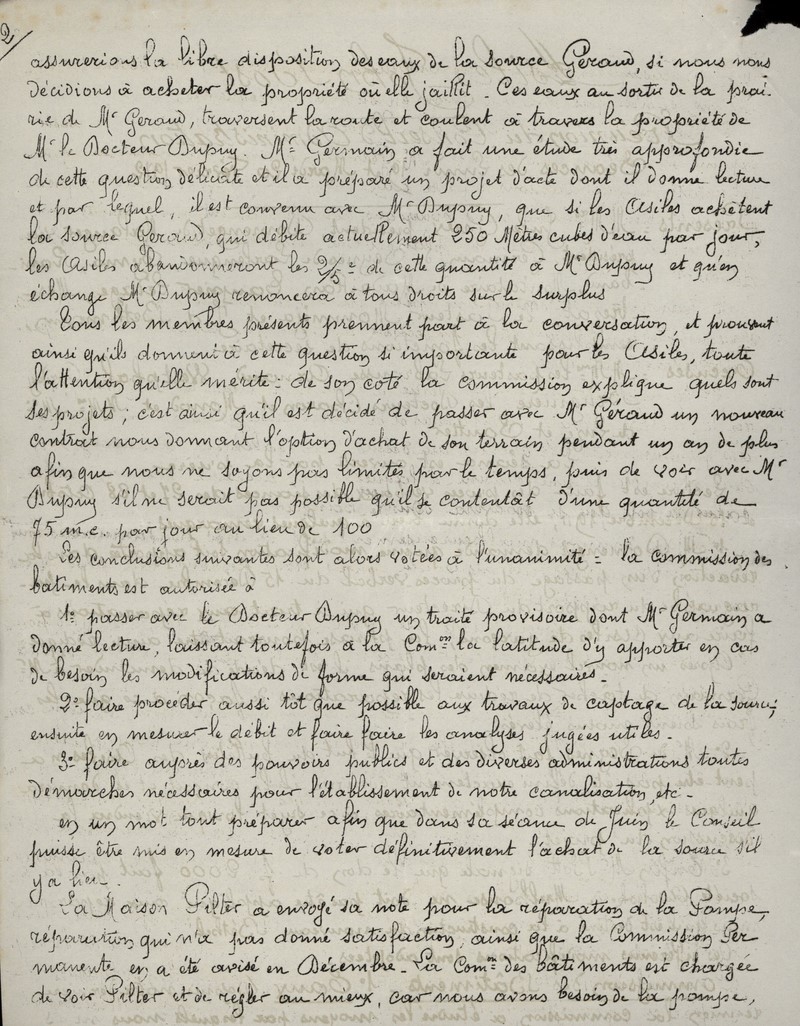 2
assurerions la libre disposition des eaux de la source Géraud, si nous nous
décidions à acheter la propriété où elle jaillit. Ces eaux au sortir de la prai-
rie de Mr Geraud, traversent la route et coulent à travers la propriété de
Mr le Docteur Dupuy. Mr Germain a fait une étude très approfondie
de cette question délicate et il a préparé un projet d'acte dont il donne lecture
et par lequel, il est convenu avec Mr Dupuy, que si les Asiles achètent
la source Geraud, qui débite actuellement 250 Mètres cubes d'eau par jour,
les Asiles abandonneront les 2/5e de cette quantité à Mr Dupuy et qu'en
échange Mr Dupuy renoncera à tous droits sur le surplus
Tous les membres présents prennent part à la conversation, et prouvent
ainsi qu'ils donnent à cette question si importante pour les Asiles, toute
l'attention qu'elle mérite : de son coté la commission explique quels sont
ses projets ; c'est ainsi qu'il est décidé de passer avec Mr Géraud un nouveau
contrat nous donnant l'option d'achat de son terrain pendant un an de plus
afin que nous ne soyons pas limités par le temps, puis de voir avec Mr
Dupuy s'il ne serait pas possible qu'il se contentât d'une quantité de
75 m.c. par jour au lieu de 100
Les conclusions suivantes sont alors votées à l'unanimité = la Commission des
batiments est autorisée à
1° passer avec le Docteur Dupuy un traité provisoire dont Mr Germain a
donné lecture, laissant toutefois à la Comon la latitude d'y apporter en cas
de besoin les modifications de forme qui seraient nécessaires.
2° faire procéder aussi tôt que possible aux travaux de captage de la source,
ensuite en mesurer le débit et faire faire les analyses jugées utiles.
3° faire auprès des pouvoirs publics et des diverses administrations toutes
démarches nécessaires pour l'établissement de notre canalisation, etc.
en un mot tout préparer afin que dans sa séance de Juin le Conseil
puisse être mis en mesure de voter définitivement l'achat de la source s'il
y a lieu.
La Maison Pilter a envoyé sa note pour la réparation de la Pompe,
réparation qui n'a pas donné satisfaction, ainsi que la Commission Per-
manente en a été avisé en Décembre. La Comon des bâtiments est chargée
de voir Pilter et de régler au mieux, car nous avons besoin de la pompe,